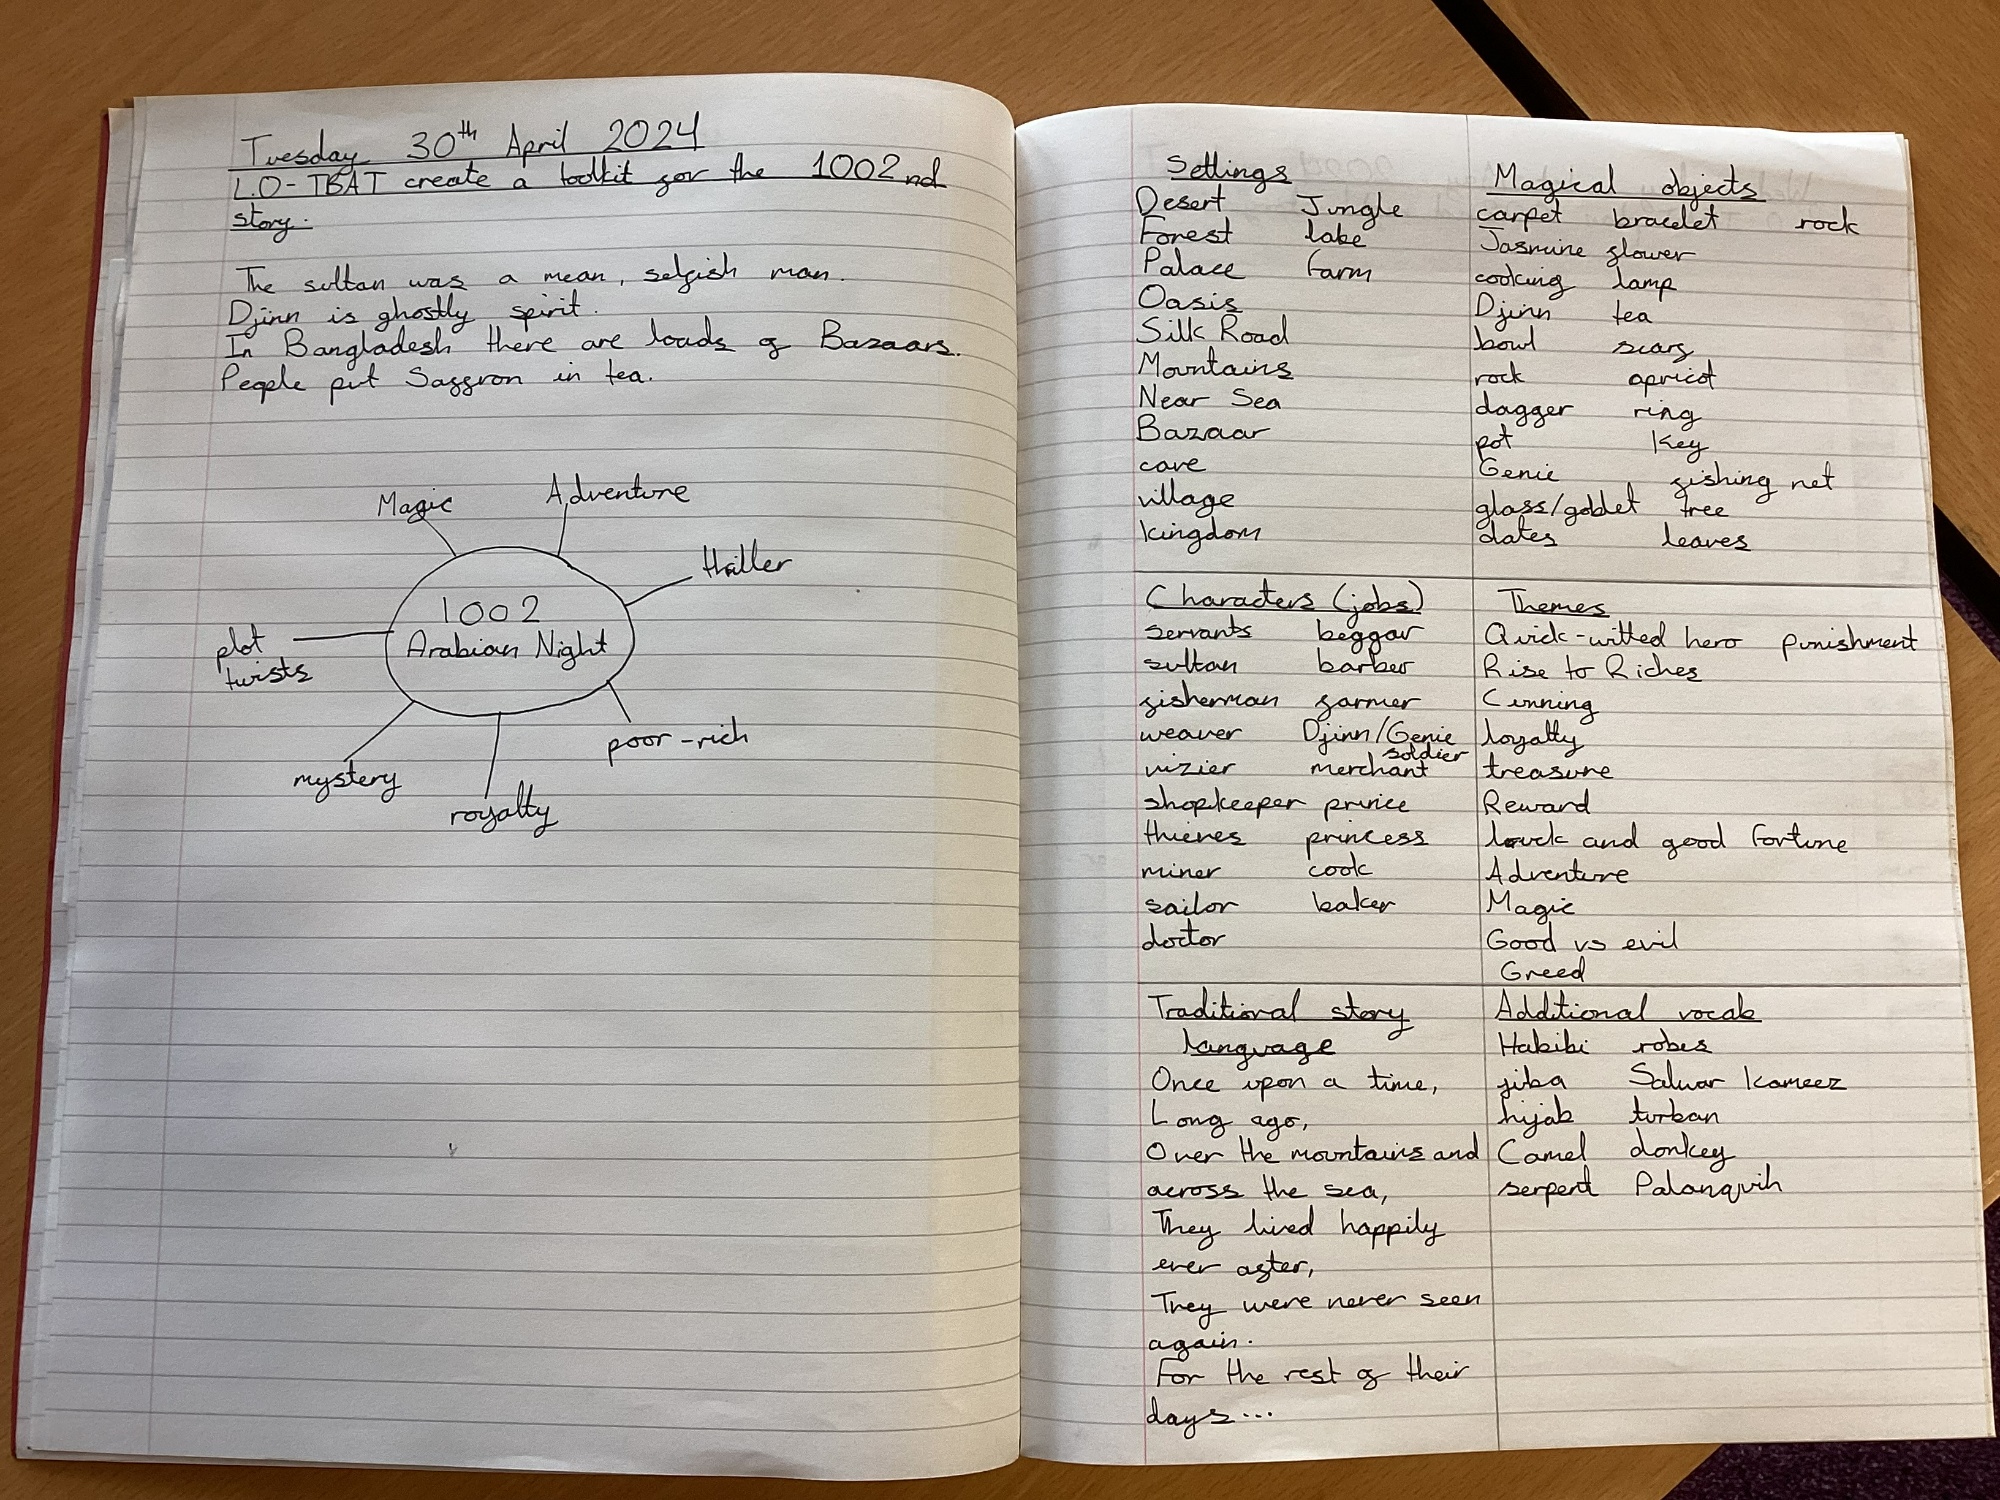 Tuesday 30th April 2024
L.O - TBAT create a toolkit for the 1002nd
story.
The sultan was a mean, selfish man.
Djinn is ghostly spirit.
In Bangladesh there are loads of Bazaars.
People put Saffron in tea.
Magic
Adventure
thriller
1002
Arabian Night
plot
twists
poor-rich
mystery
royalty
Settings
Desert Jungle
Forest lake
Palace Farm
Oasis
Silk Road
Mountains
Near Sea
Bazaar
cave
village
kingdom
Magical objects
carpet bracelet rock
Jasmine flower
cooking lamp
Djinn tea
bowl scarf
rock apricot
dagger ring
pot Key
Genie fishing net
glass/goblet tree
dates leaves
Characters (jobs)
servants beggar
sultan barber
fisherman farmer
weaver Djinn/Genie
soldier
vizier merchant
shopkeeper prince
thieves princess
miner cook
sailor baker
doctor
Themes
Quick-witted hero punishment
Rise to Riches
Cunning
loyalty
treasure
Reward
luck and good fortune
Adventure
Magic
Good vs evil
Greed
Traditional story
language
Once upon a time,
Long ago,
Over the mountains and
across the sea,
They lived happily
ever after,
They were never seen
again.
For the rest of their
days...
Additional vocab
Habibi robes
jiba Salwar kameez
hijab turban
Camel donkey
serpent Palanquin